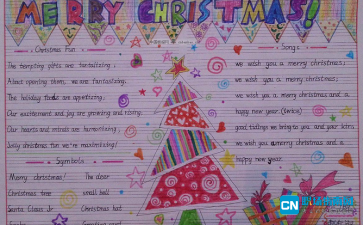 MERRY CHRISTMAS!
Christmas Fun
The tempting gifts are tantalizing;
About opening them, we are fantasizing.
The holiday foods are appetizing,
Our excitement and joy are growing and rising.
Our hearts and minds are harmonizing;
Jolly christmas fun we're maximizing!
Symbols
Merry christmas! The deer
Christmas tree small bell
Santa Claus Christmas hat
Song
we wish you a merry christmas;
we wish you a merry christmas;
we wish you a merry christmas and a
happy new year. (twice)
good tidings we bring to you and your kin;
we wish you a merry christmas and a
happy new year.
CN